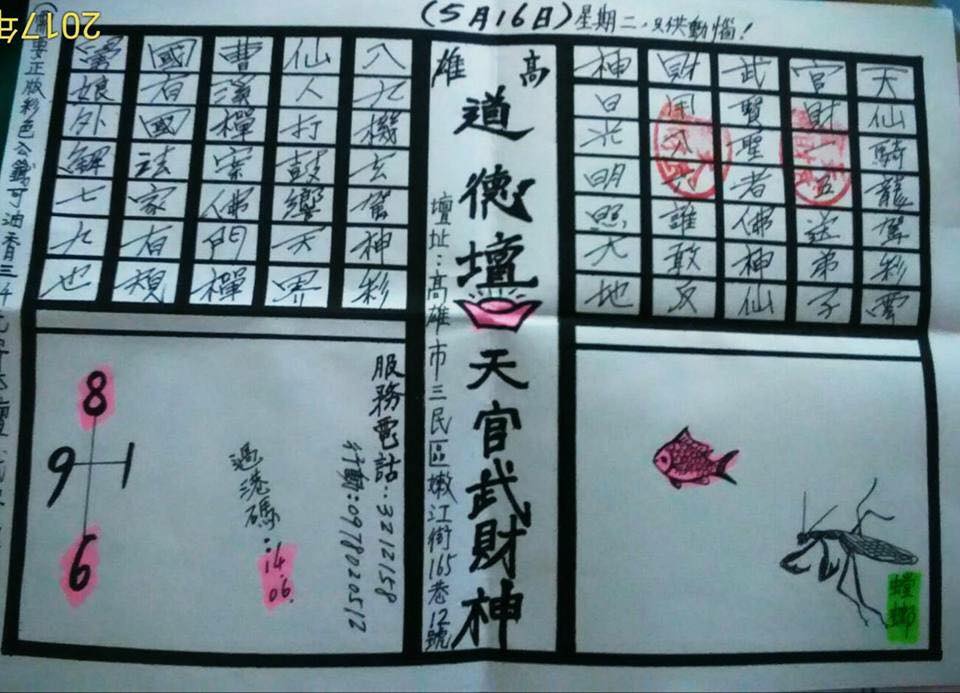 2017年
(5月16日)星期二,只供動惱!
天仙騎龍駕彩雲
官財一五送弟子
武賢聖者佛神仙
財八六誰敢反
神日光明照大地
高雄
道德壇
天官武財神
壇址:高雄市三民區嫩江街165巷12號
八九機玄駕神彩
仙人打鼓響天界
曹溪禪宗佛門禪
國有國法家有規
娘外解七九也
螳螂
服務電話:3212158
行動:0978020512
過港碼:14.06.
8
9 1
6
要正版彩色公錢可油香三